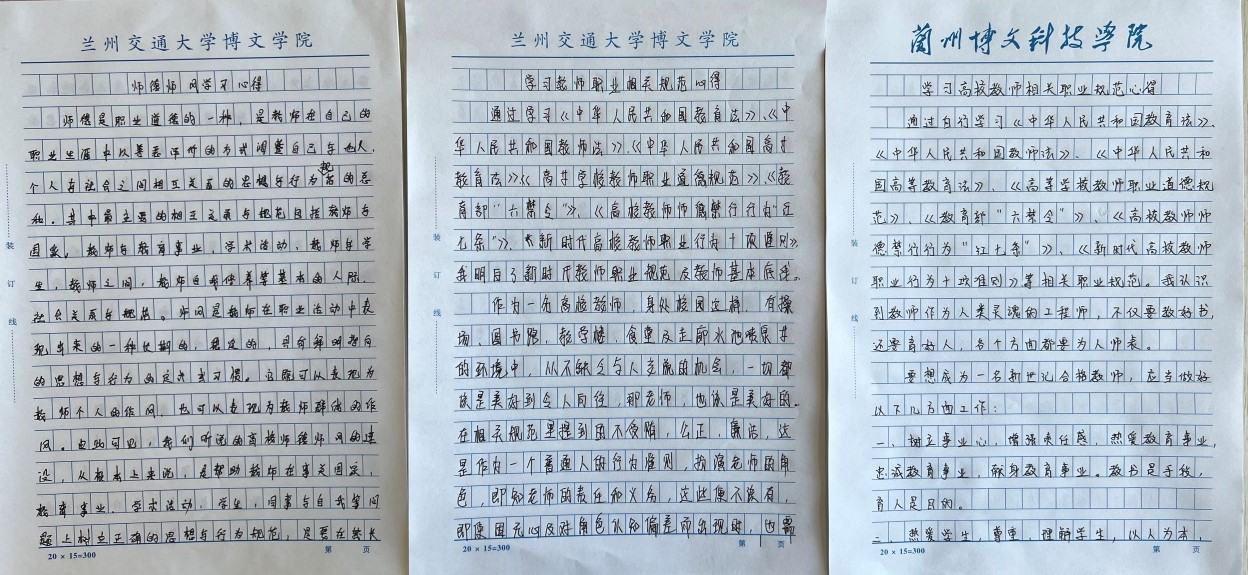 兰州交通大学博文学院
师德师风学习心得
师德是职业道德的一种，是教师在自己的
职业生涯中以善恶评价的方式调整自己与他人、
个人与社会之间相互关系的思想与行为的总
把
和。其中最主要的相互关系与规范包括教师与
国家，教师与教育事业，学术活动，教师与学
生，教师之间，教师自我修养等基本的人际、
社会关系与规范。师风是教师在职业活动中表
现出来的一种长期的，稳定的，具有鲜明指向
的思想与行为的定式或习惯。它既可以表现为
教师个人的作风，也可以表现为教师群体的作
风。由此可见，我们所说的高校师德师风的建
设，从根本上来说，是帮助教师在事关国家，
教育事业、学术活动，学生，同事与自我等问
题上树立正确的思想与行为规范，是要在较长
20 × 15=300
第 页
装
订
线
兰州交通大学博文学院
学习教师职业相关规范心得
通过学习《中华人民共和国教育法》、《中
华人民共和国教师法》、《中华人民共和国高等
教育法》、《高等学校教师职业道德规范》、《教
育部“六禁令”》、《高校教师师德禁行行为“红
七条”》、《新时代高校教师职业行为十项准则》。
我明白了新时代教师职业规范及教师基本底线。
作为一名高校教师，身处校园这样，有操
场、图书院，教学楼，食堂及走廊水池喷泉等
的环境中，从不缺乏与人交流的机会，一切都
该是美好到令人向往，那老师，也该是美好的。
在相关规范里提到的不侵贿，公正，廉洁，这
是作为一个普通人的行为准则，扮演老师的角
色，即知老师的责任和义务，这些便不该有，
即便因无心及对角色认知偏差而出现时，也需
20 × 15=300
第 页
装
订
线
兰州博文科技学院
学习高校教师相关职业规范心得
通过自行学习《中华人民共和国教育法》、
《中华人民共和国教师法》、《中华人民共和
国高等教育法》、《高等学校教师职业道德规
范》、《教育部“六禁令”》、《高校教师师
德禁行行为“红七条”》、《新时代高校教师
职业行为十项准则》等相关职业规范。我认识
到教师作为人类灵魂的工程师，不仅要教好书，
还要育好人，各个方面都要为人师表。
要想成为一名新世纪合格教师，应当做好
以下几方面工作：
一、树立事业心，增强责任感，热爱教育事业，
忠诚教育事业，献身教育事业。教书是手段，
育人是目的。
二、热爱学生，尊重、理解学生，以人为本，
20 × 15=300
第 页
装
订
线